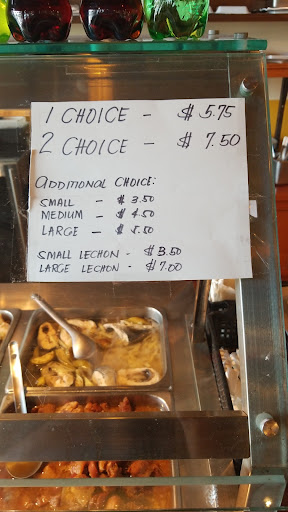 1 CHOICE - $ 5.75
2 CHOICE - $ 7.50
ADDITIONAL CHOICE:
SMALL - $ 3.50
MEDIUM - $ 4.50
LARGE - $ 5.50
SMALL LECHON - $ 3.50
LARGE LECHON - $ 7.00